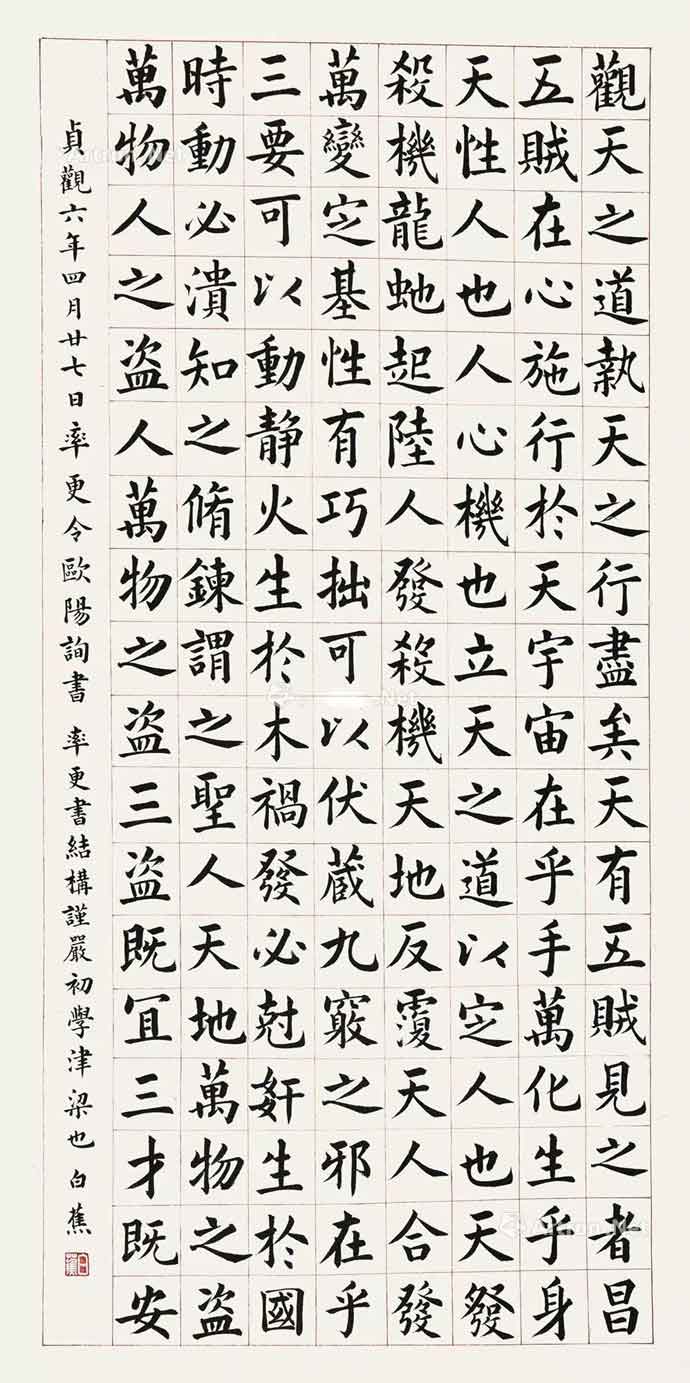 觀天之道執天之行盡矣天有五賊見之者昌
五賊在心施行於天宇宙在乎手萬化生乎身
天性人也人心機也立天之道以定人也天發
殺機龍虵起陸人發殺機天地反覆天人合發
萬變定基性有巧拙可以伏蔵九竅之邪在乎
三要可以動静火生於木禍發必尅奸生於國
時動必潰知之脩鍊謂之聖人天地萬物之盗
萬物人之盗人萬物之盗三盗既宜三才既安
貞觀六年四月廿七日率更令歐陽詢書 率更書結構謹嚴初學津梁也 白蕉